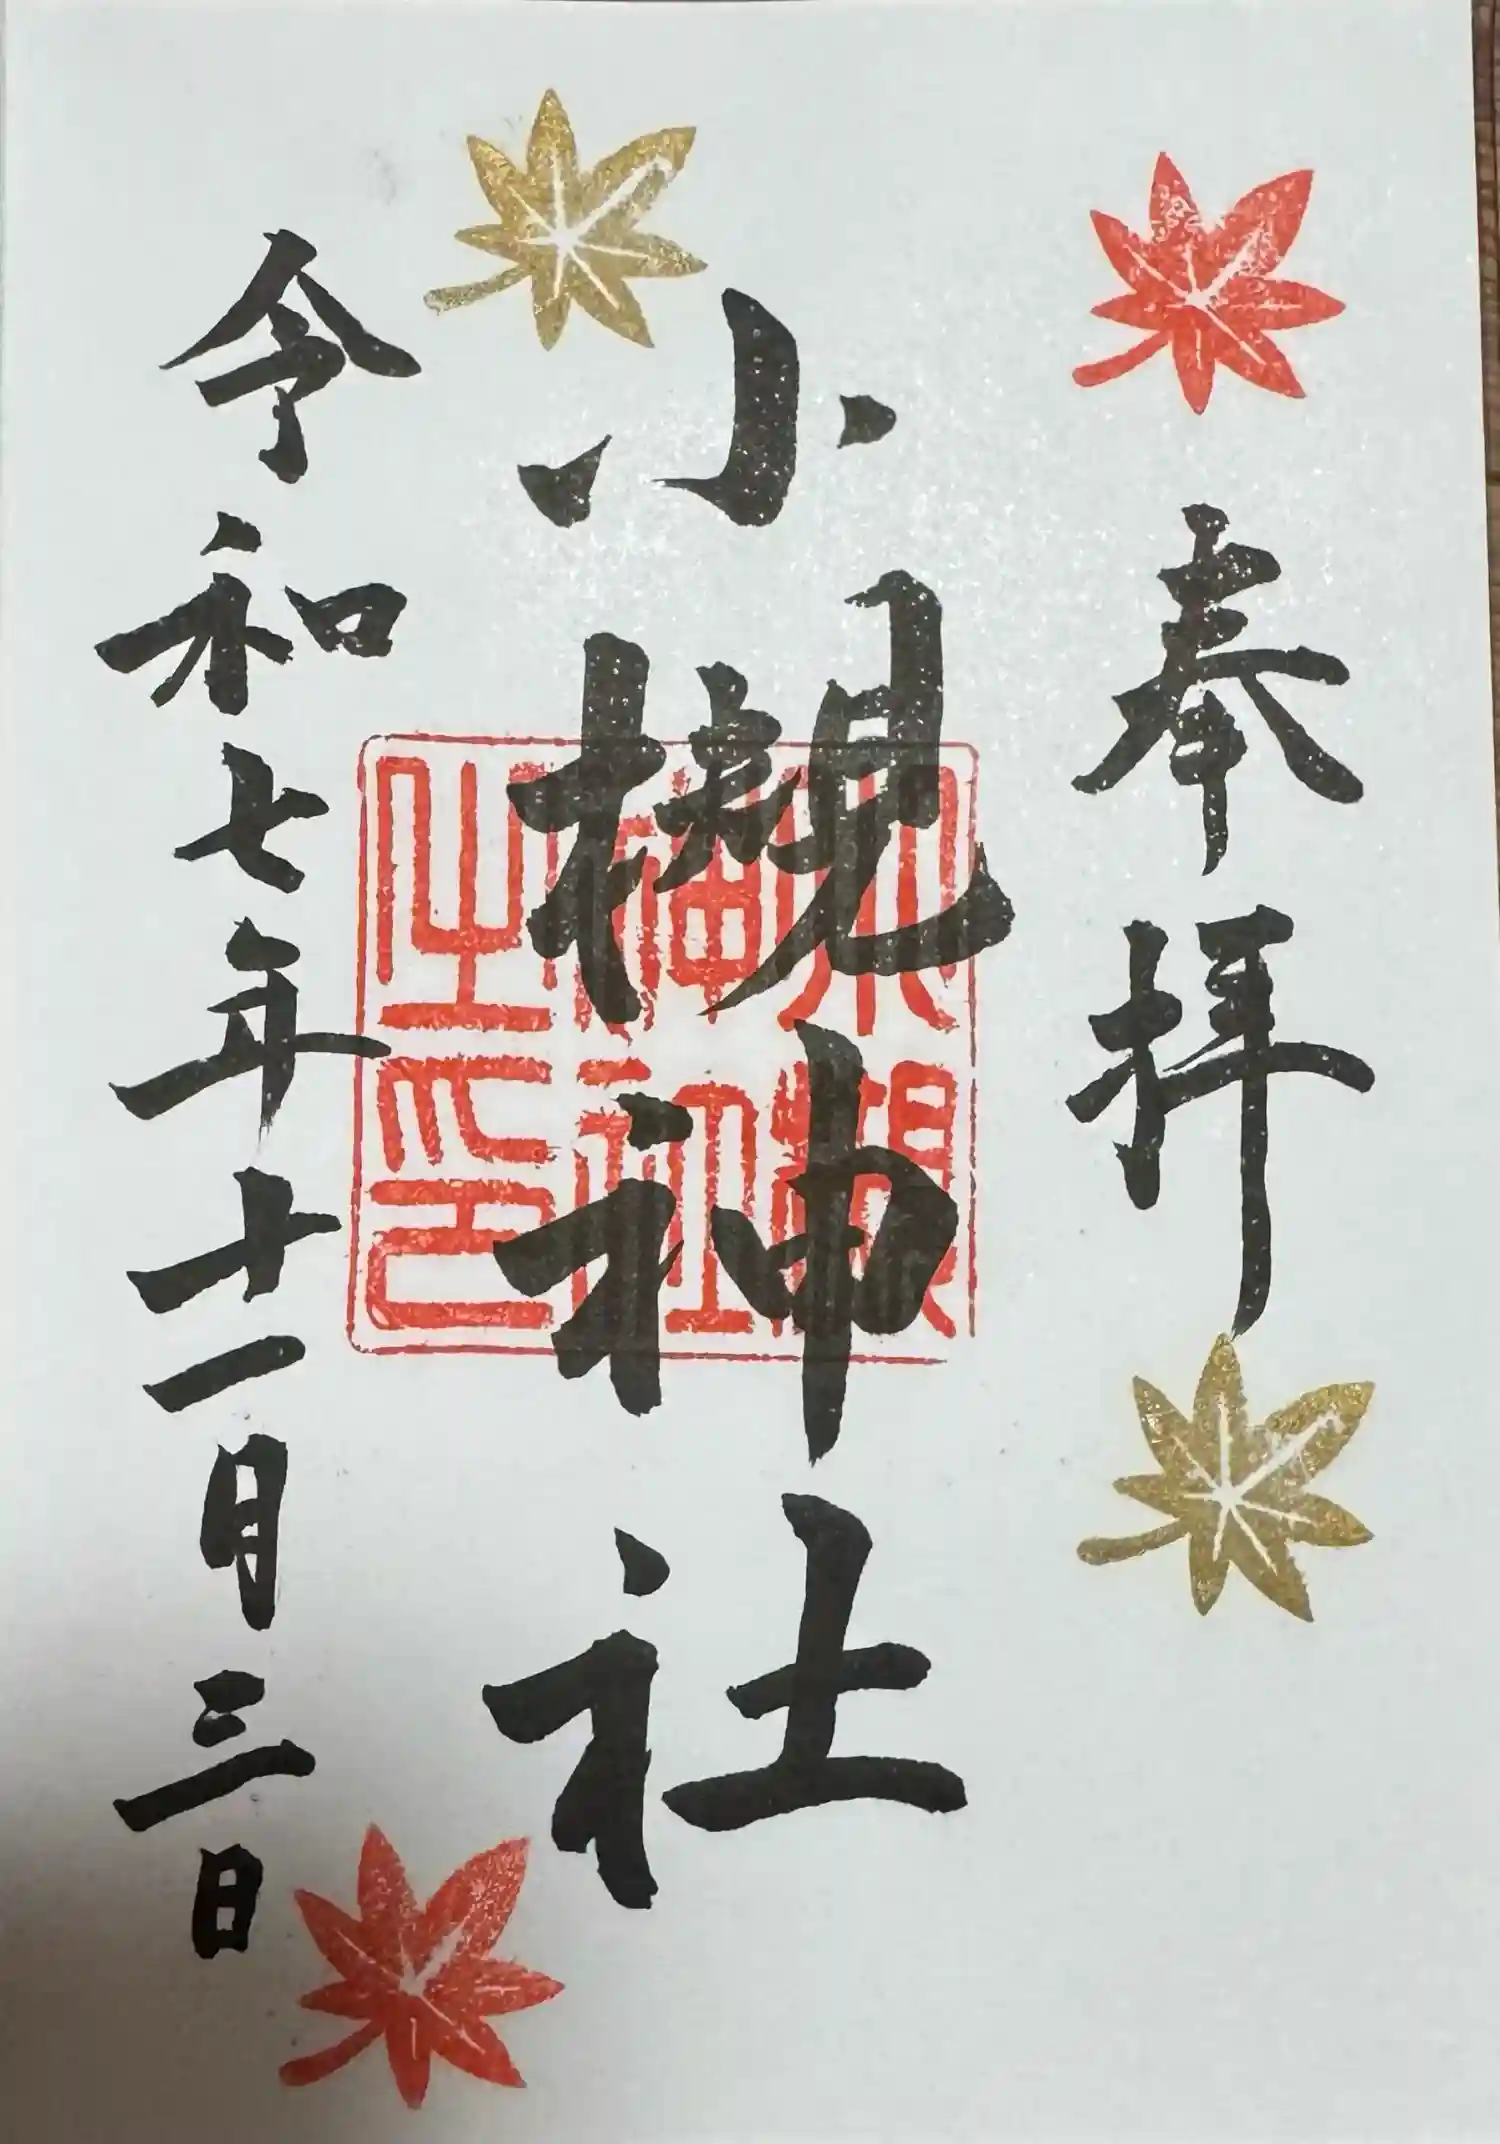 奉拝
小槻神社
令和七年十一月三日
小槻
神社
之印